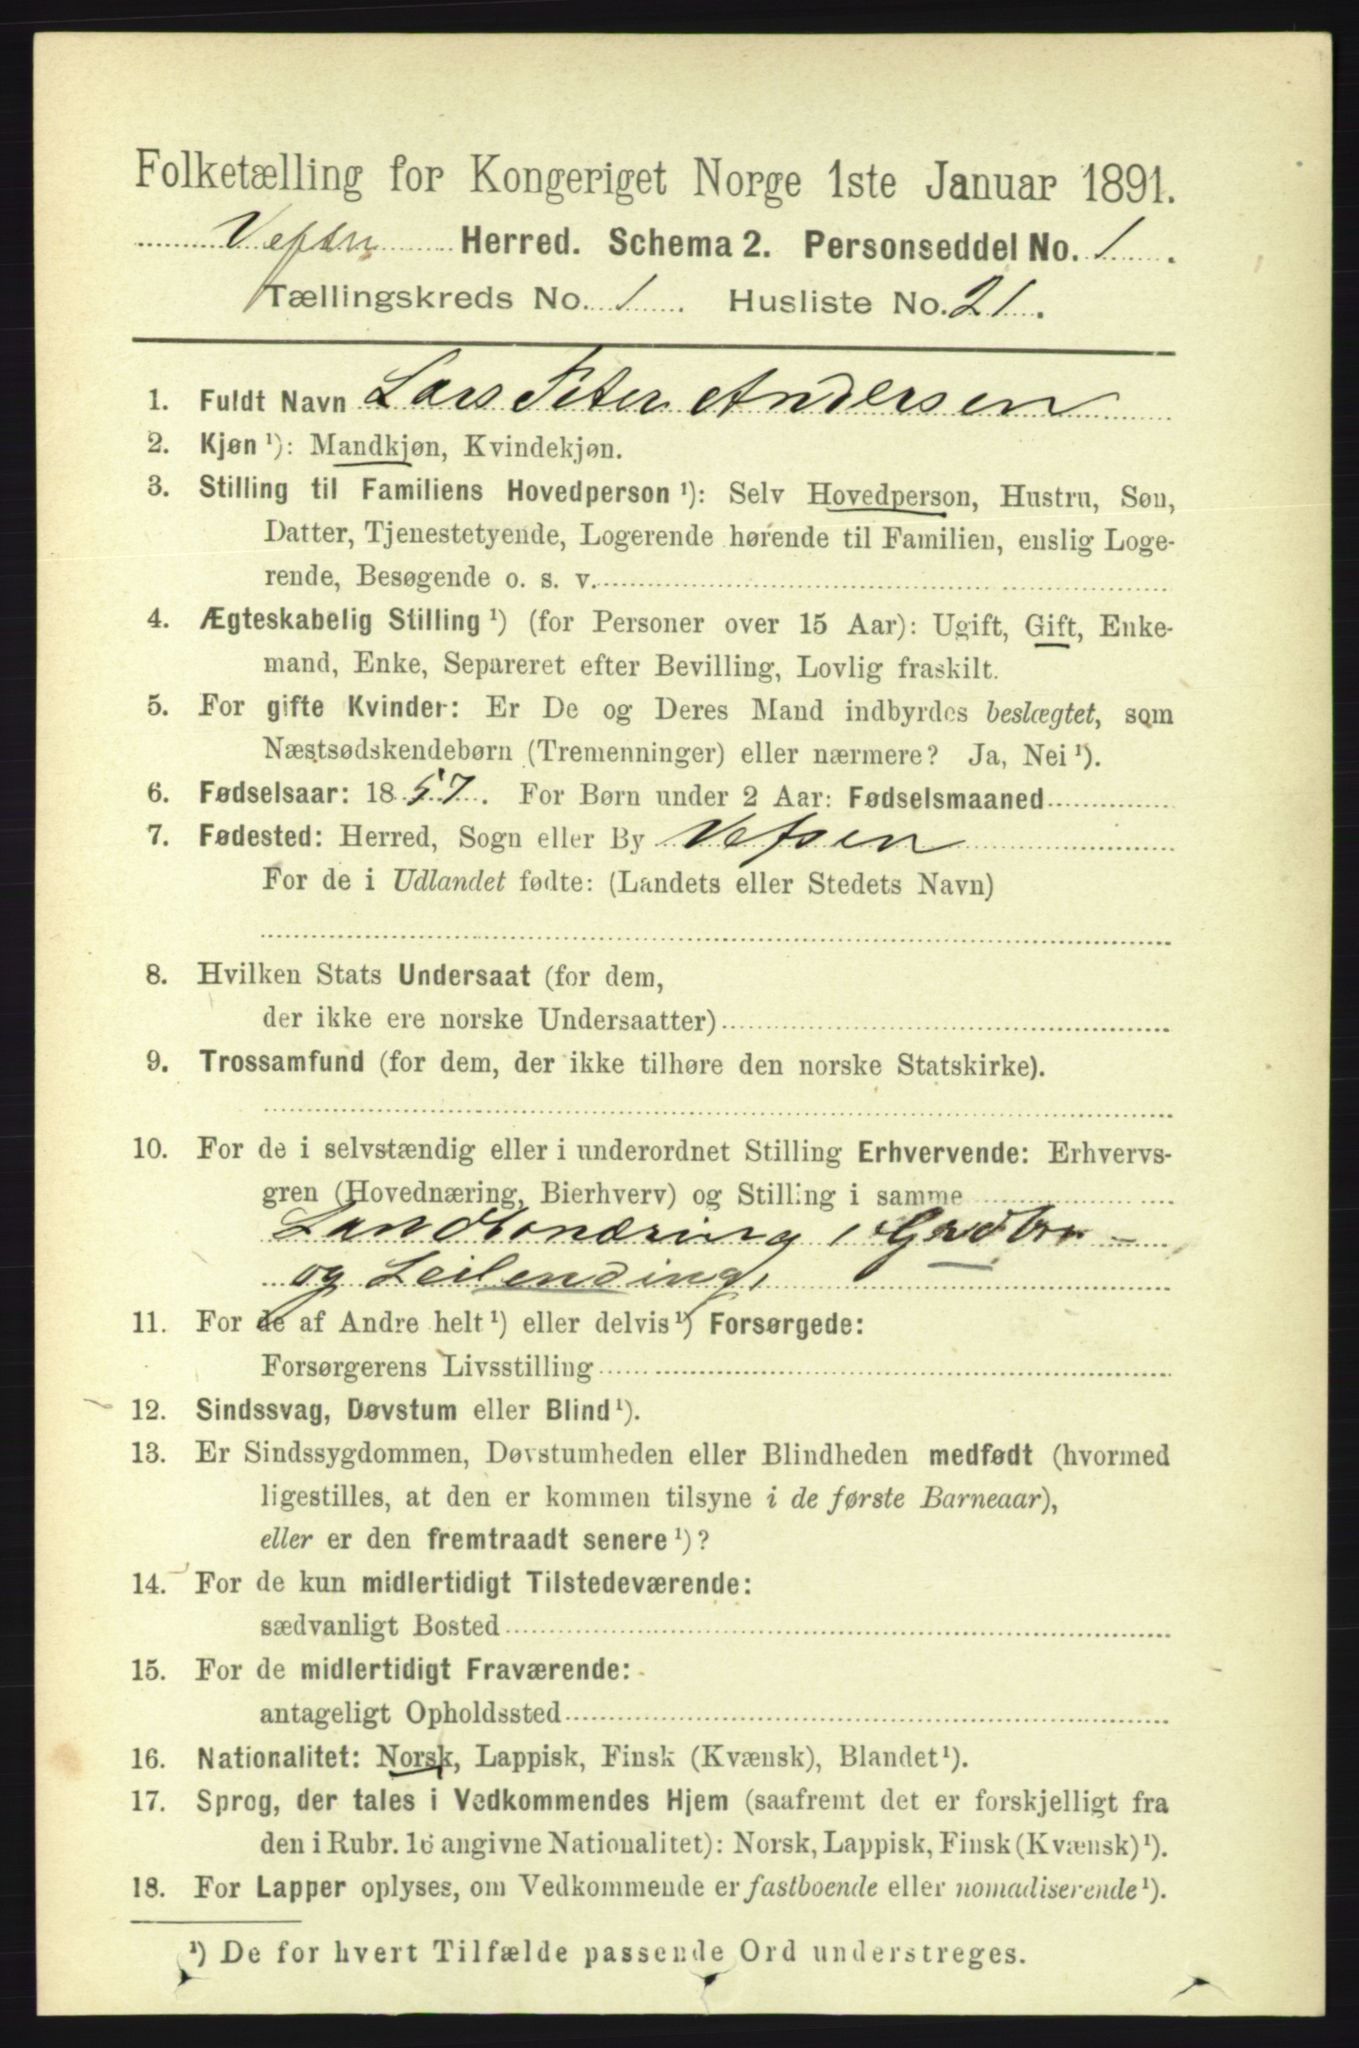 Folketælling for Kongeriget Norge 1ste Januar 1891.
Vefsn Herred. Schema 2. Personseddel No. 1.
Tællingskreds No. 1. Husliste No. 21.
1. Fuldt Navn Lars Peter Andersen
2. Kjøn ¹): Mandkjøn, Kvindekjøn.
3. Stilling til Familiens Hovedperson ¹): Selv Hovedperson, Hustru, Søn,
Datter, Tjenestetyende, Logerende hørende til Familien, enslig Loge-
rende, Besøgende o. s. v.
4. Ægteskabelig Stilling ¹) (for Personer over 15 Aar): Ugift, Gift, Enke-
mand, Enke, Separeret efter Bevilling, Lovlig fraskilt.
5. For gifte Kvinder: Er De og Deres Mand indbyrdes beslægtet, som
Næstsødskendebørn (Tremenninger) eller nærmere? Ja, Nei ¹).
6. Fødselsaar: 1857. For Børn under 2 Aar: Fødselsmaaned
7. Fødested: Herred, Sogn eller By Vefsen
For de i Udlandet fødte: (Landets eller Stedets Navn)
8. Hvilken Stats Undersaat (for dem,
der ikke ere norske Undersaatter)
9. Trossamfund (for dem, der ikke tilhøre den norske Statskirke).
10. For de i selvstændig eller i underordnet Stilling Erhvervende: Erhvervs-
gren (Hovednæring, Bierhverv) og Stilling i samme
Landbonæring, Gadbr -
og Leilending,
11. For de af Andre helt ¹) eller delvis ¹) Forsørgede:
Forsørgerens Livsstilling
12. Sindssvag, Døvstum eller Blind ¹).
13. Er Sindssygdommen, Døvstumheden eller Blindheden medfødt (hvormed
ligestilles, at den er kommen tilsyne i de første Barneaar),
eller er den fremtraadt senere ¹)?
14. For de kun midlertidigt Tilstedeværende:
sædvanligt Bosted
15. For de midlertidigt Fraværende:
antageligt Opholdssted
16. Nationalitet: Norsk, Lappisk, Finsk (Kvænsk), Blandet ¹).
17. Sprog, der tales i Vedkommendes Hjem (saafremt det er forskjelligt fra
den i Rubr. 16 angivne Nationalitet): Norsk, Lappisk, Finsk (Kvænsk) ¹).
18. For Lapper oplyses, om Vedkommende er fastboende eller nomadiserende ¹).
¹) De for hvert Tilfælde passende Ord understreges.